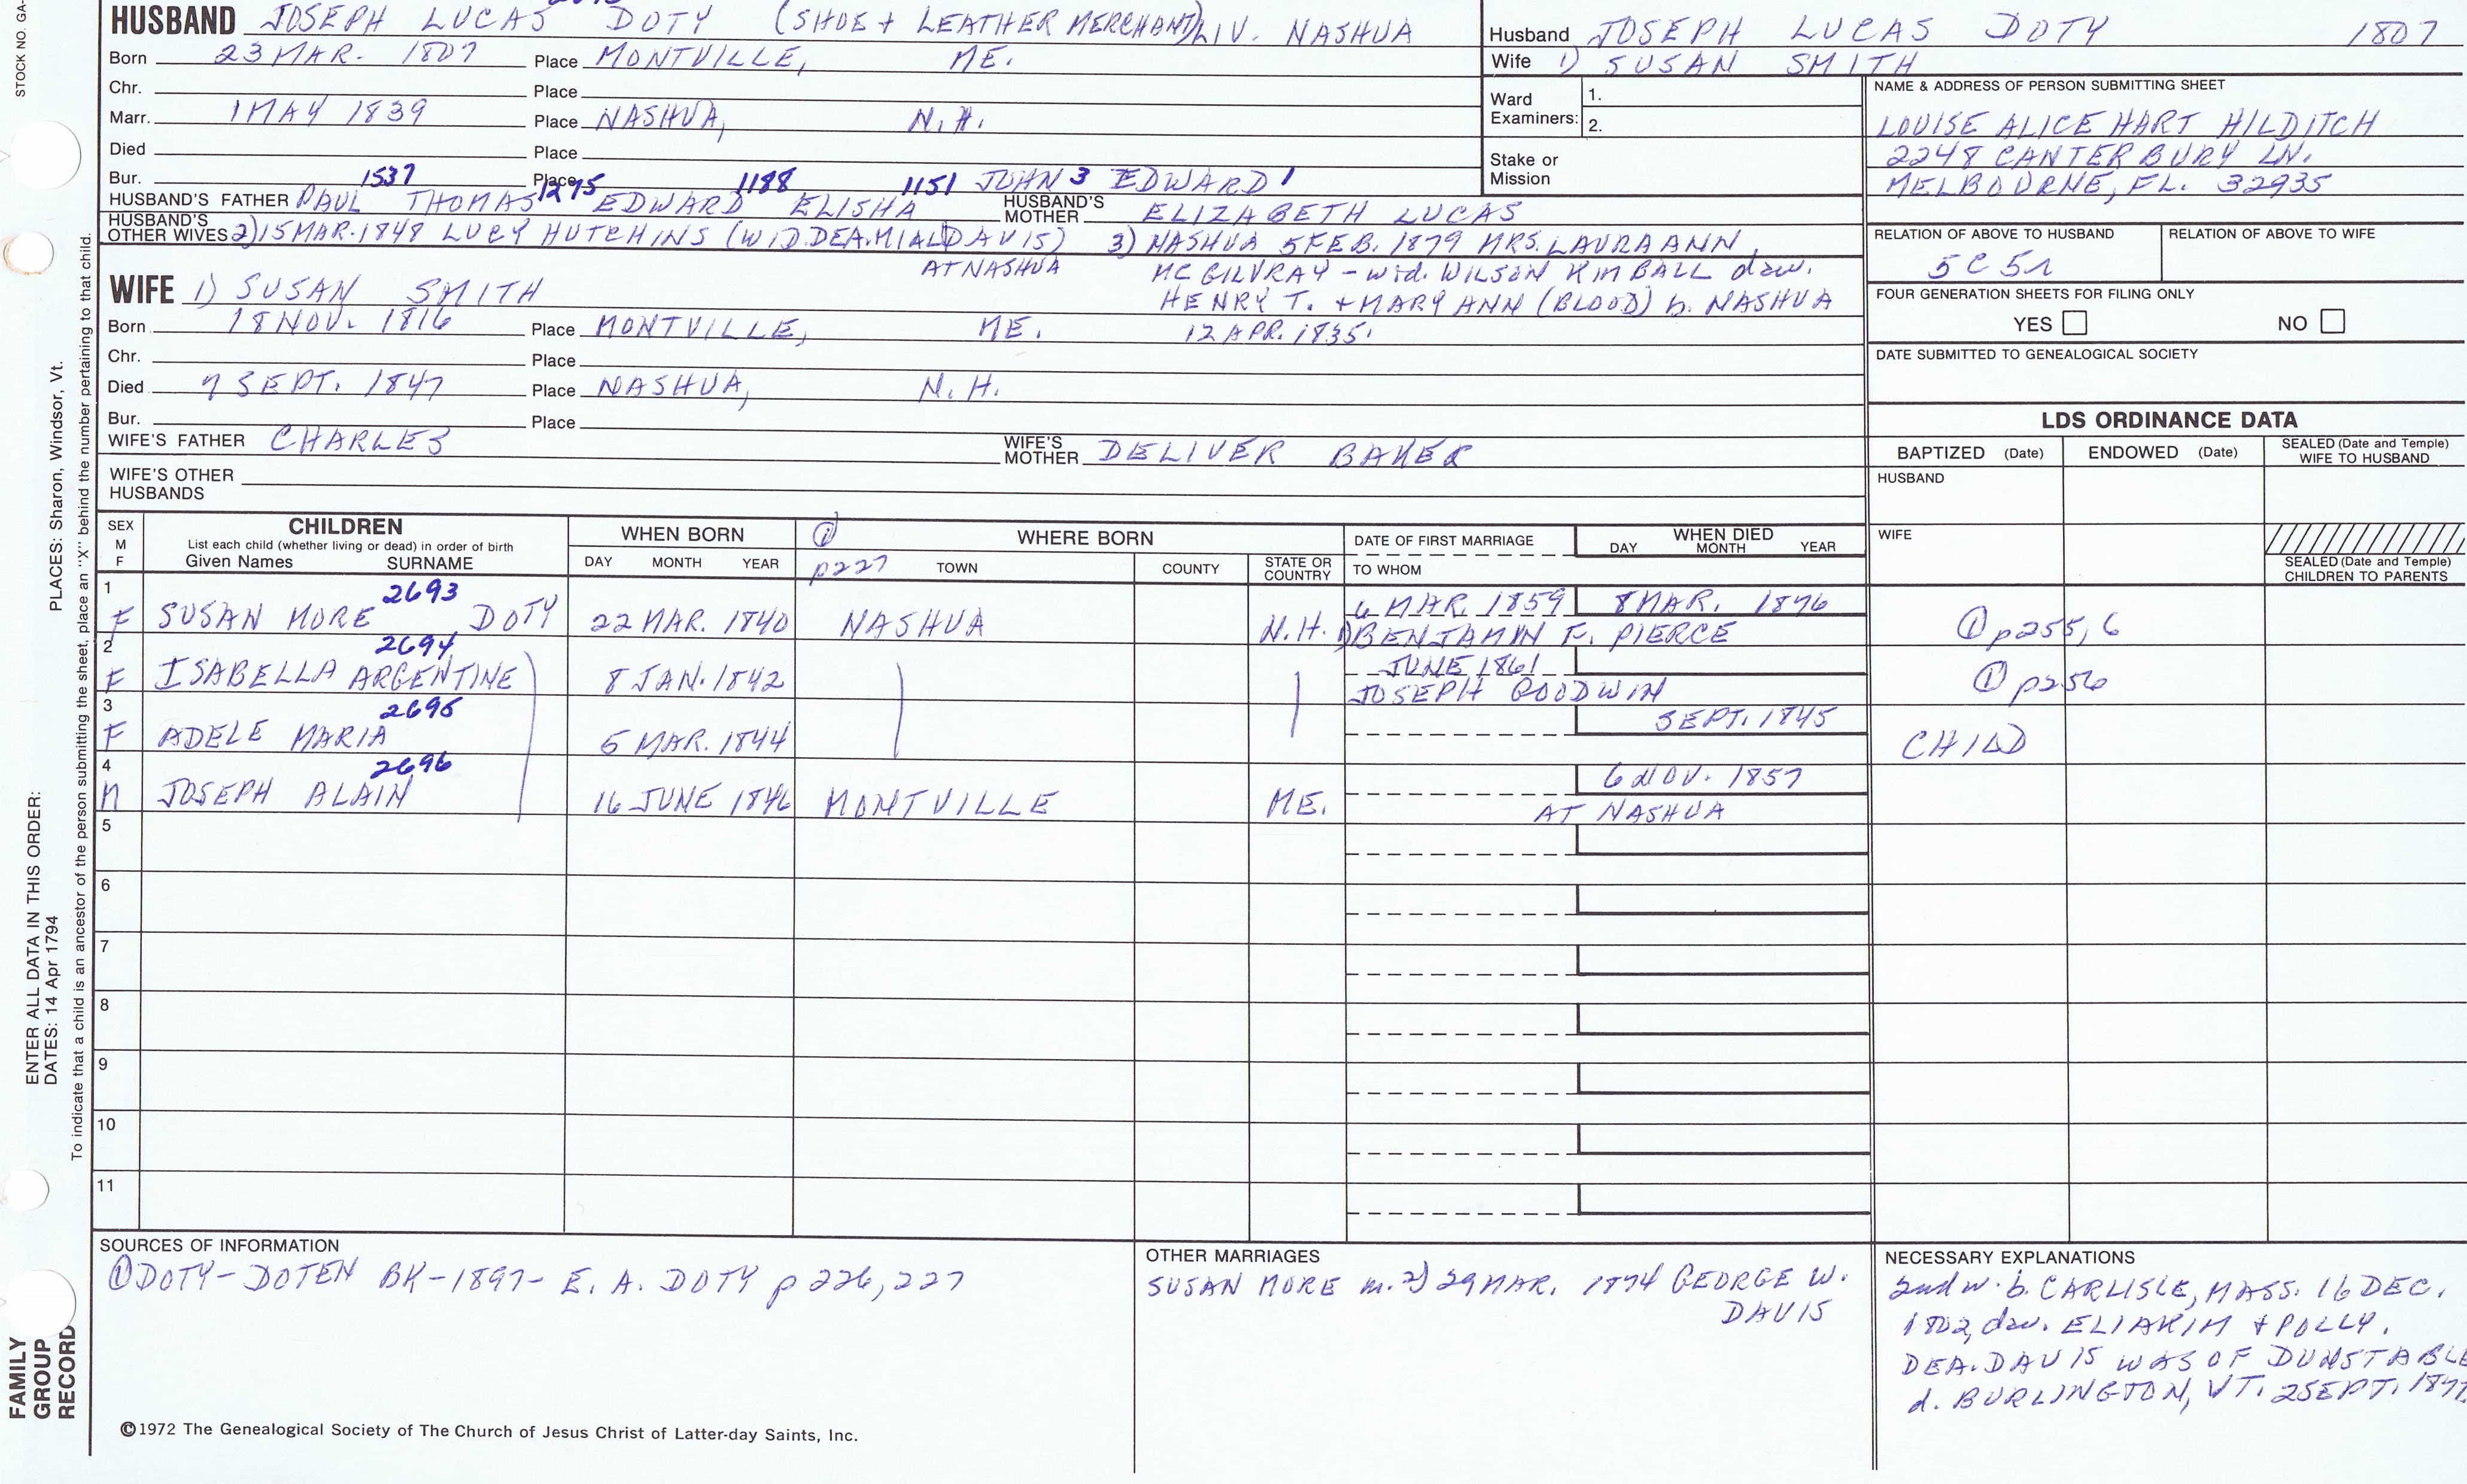 STOCK NO. GA-
HUSBAND JOSEPH LUCAS DOTY (SHOE + LEATHER MERCHANT) LIV. NASHUA
Born 23 MAR. 1807 Place MONTVILLE, ME.
Chr. Place
Marr. 1 MAY 1839 Place NASHUA, N.H.
Died Place
Bur. Place
1537 1275 1188 1151 JOHN 3 EDWARD 1
HUSBAND'S FATHER PAUL THOMAS EDWARD ELISHA HUSBAND'S MOTHER ELIZABETH LUCAS
HUSBAND'S OTHER WIVES 2) 15 MAR. 1848 LUCY HUTCHINS (WID. DEA. MIAL DAVIS) 3) NASHUA 5 FEB. 1879 MRS. LAURA ANN
AT NASHUA MC GILVRAY - wid. WILSON KIMBALL daw.
HENRY T. + MARY ANN (BLOOD) b. NASHUA
12 APR. 1835.
WIFE 1) SUSAN SMITH
Born 18 NOV. 1816 Place MONTVILLE, ME.
Chr. Place
Died 7 SEPT. 1847 Place NASHUA, N.H.
Bur. Place
WIFE'S FATHER CHARLES WIFE'S MOTHER DELIVER BAKER
WIFE'S OTHER HUSBANDS
Husband JOSEPH LUCAS DOTY 1807
Wife 1) SUSAN SMITH
Ward Examiners: 1.
2.
Stake or Mission
NAME & ADDRESS OF PERSON SUBMITTING SHEET
LOUISE ALICE HART HILDITCH
2248 CANTERBURY LN.
MELBOURNE, FL. 32935
RELATION OF ABOVE TO HUSBAND RELATION OF ABOVE TO WIFE
5C5R
FOUR GENERATION SHEETS FOR FILING ONLY
YES NO
DATE SUBMITTED TO GENEALOGICAL SOCIETY
LDS ORDINANCE DATA
BAPTIZED (Date) ENDOWED (Date) SEALED (Date and Temple) WIFE TO HUSBAND
HUSBAND
WIFE
SEALED (Date and Temple) CHILDREN TO PARENTS
SEX M F
CHILDREN
List each child (whether living or dead) in order of birth
Given Names SURNAME
WHEN BORN
DAY MONTH YEAR
① p227
WHERE BORN
TOWN COUNTY STATE OR COUNTRY
DATE OF FIRST MARRIAGE
TO WHOM
WHEN DIED
DAY MONTH YEAR
1 2693 6 MAR. 1859 8 MAR. 1876
F SUSAN MORE DOTY 22 MAR. 1840 NASHUA N.H. 1) BENJAMIN F. PIERCE ① p255,6
2 2694 JUNE 1861
F ISABELLA ARGENTINE 8 JAN. 1842 JOSEPH GOODWIN ① p256
3 2695 SEPT. 1845
F ADELE MARIA 5 MAR. 1844 CHILD
4 2696 6 NOV. 1857
M JOSEPH ALAIN 16 JUNE 1846 MONTVILLE ME. AT NASHUA
5
6
7
8
9
10
11
SOURCES OF INFORMATION
① DOTY-DOTEN BK-1897- E. A. DOTY p 226, 227
OTHER MARRIAGES
SUSAN MORE m. 2) 29 MAR. 1874 GEORGE W.
DAVIS
NECESSARY EXPLANATIONS
2nd w. b. CARLISLE, MASS. 16 DEC.
1802, daw. ELIAKIM + POLLY.
DEA. DAVIS WAS OF DUNSTABLE
d. BURLINGTON, VT. 2 SEPT.
©1972 The Genealogical Society of The Church of Jesus Christ of Latter-day Saints, Inc.
ENTER ALL DATA IN THIS ORDER:
DATES: 14 Apr 1794 PLACES: Sharon, Windsor, Vt.
To indicate that a child is an ancestor of the person submitting the sheet, place an "X" behind the number pertaining to that child.
FAMILY
GROUP
RECORD